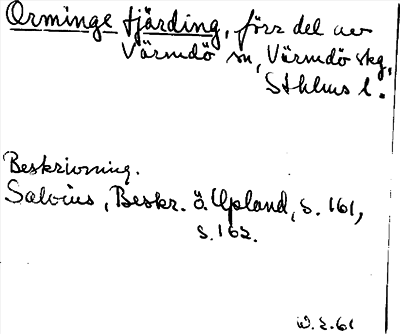 Orminge fjärding, förr del av
Värmdö sn, Värmdö skg,
Sthlms l.
Beskrivning.
Salvius, Beskr. ö. Upland, s. 161,
s. 162.
W.E. 61